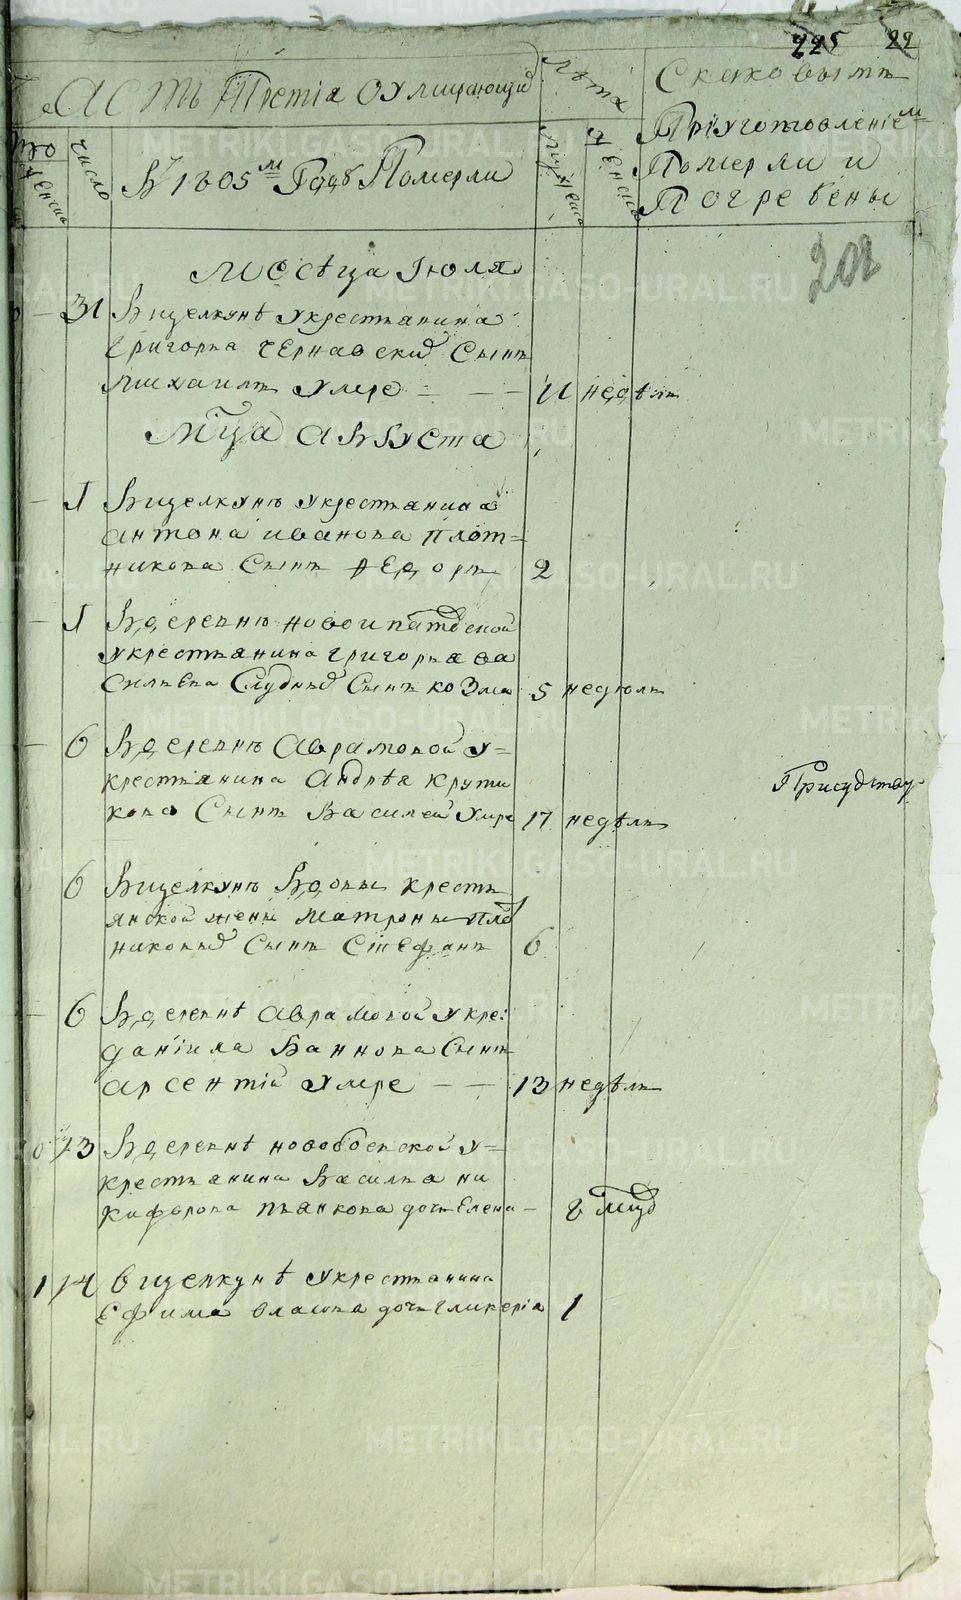 225 22
Часть Третiа О Умирающих
Лета
Скаковымъ
Прiуготовленiем
Померли и
Погребены
число
В 1805м Годѣ Померли
Мужеска
Женска
202
Месѣца Июля
31 Вщелкунѣ Укрестьянина
Григорья Чернавских Сынъ
Михаилъ Умре 11 недѣль
Мца Августа
1 Вщелкунѣ Укрестьянина
антона иванова Плот=
никова Сынъ Ѳедоръ 2
1 Вдеревнѣ новоипатовской
Укрестьянина григорья ва
сильева Слудных Сынъ козма 5 недель
6 Вдеревнѣ Аврамовой У=
крестьянина Андрѣа крути
кова Сынъ Василей Умре 17 недѣль
Присудству
6 Вщелкунѣ Вдовы кресть
янской жены матроны Плот
никовых Сынъ Стефанъ 6
6 Вдеревнѣ Аврамовой Укре:
данiила Баннова Сынъ
арсентiй Умре 13 недѣль
13 Вдеревнѣ новобоевской У=
крестьянина Василья ни
кифорова пьянкова дочь Елена
1 14 Вщелкунѣ Укрестьянина
Ефима власова дочь гликерiа 1